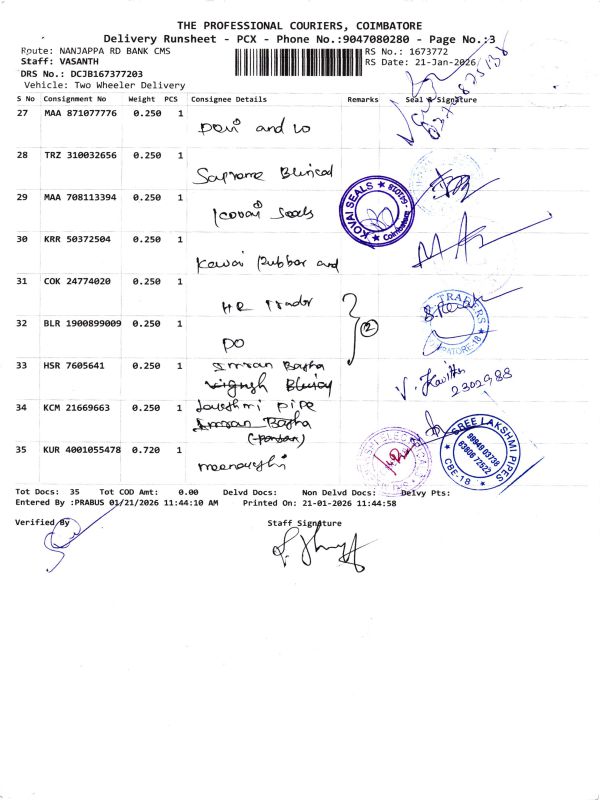 THE PROFESSIONAL COURIERS, COIMBATORE
Delivery Runsheet - PCX - Phone No.:9047080280 - Page No.:3
Route: NANJAPPA RD BANK CMS
RS No.: 1673772
Staff: VASANTH
RS Date: 21-Jan-2026
DRS No.: DCJB167377203
Vehicle: Two Wheeler Delivery
S No Consignment No Weight PCS Consignee Details Remarks Seal & Signature
27 MAA 871077776 0.250 1
Devi and co
28 TRZ 310032656 0.250 1
Supreme
29 MAA 708113394 0.250 1
Kovai Seals
KOVAI SEALS
Coimbatore
30 KRR 50372504 0.250 1
Kovai Rubber and
31 COK 24774020 0.250 1
HR Trader
2
TRADERS
32 BLR 1900899009 0.250 1
DO
33 HSR 7605641 0.250 1
Imran Basha
V. Kavitha
2302988
34 KCM 21669663 0.250 1
Lakshmi pipe
Imran Basha
SREE LAKSHMI PIPES
CBE-18
35 KUR 4001055478 0.720 1
meenakshi
Tot Docs: 35 Tot COD Amt: 0.00 Delvd Docs: Non Delvd Docs: Delvy Pts:
Entered By :PRABUS 01/21/2026 11:44:10 AM Printed On: 21-01-2026 11:44:58
Verified By
Staff Signature